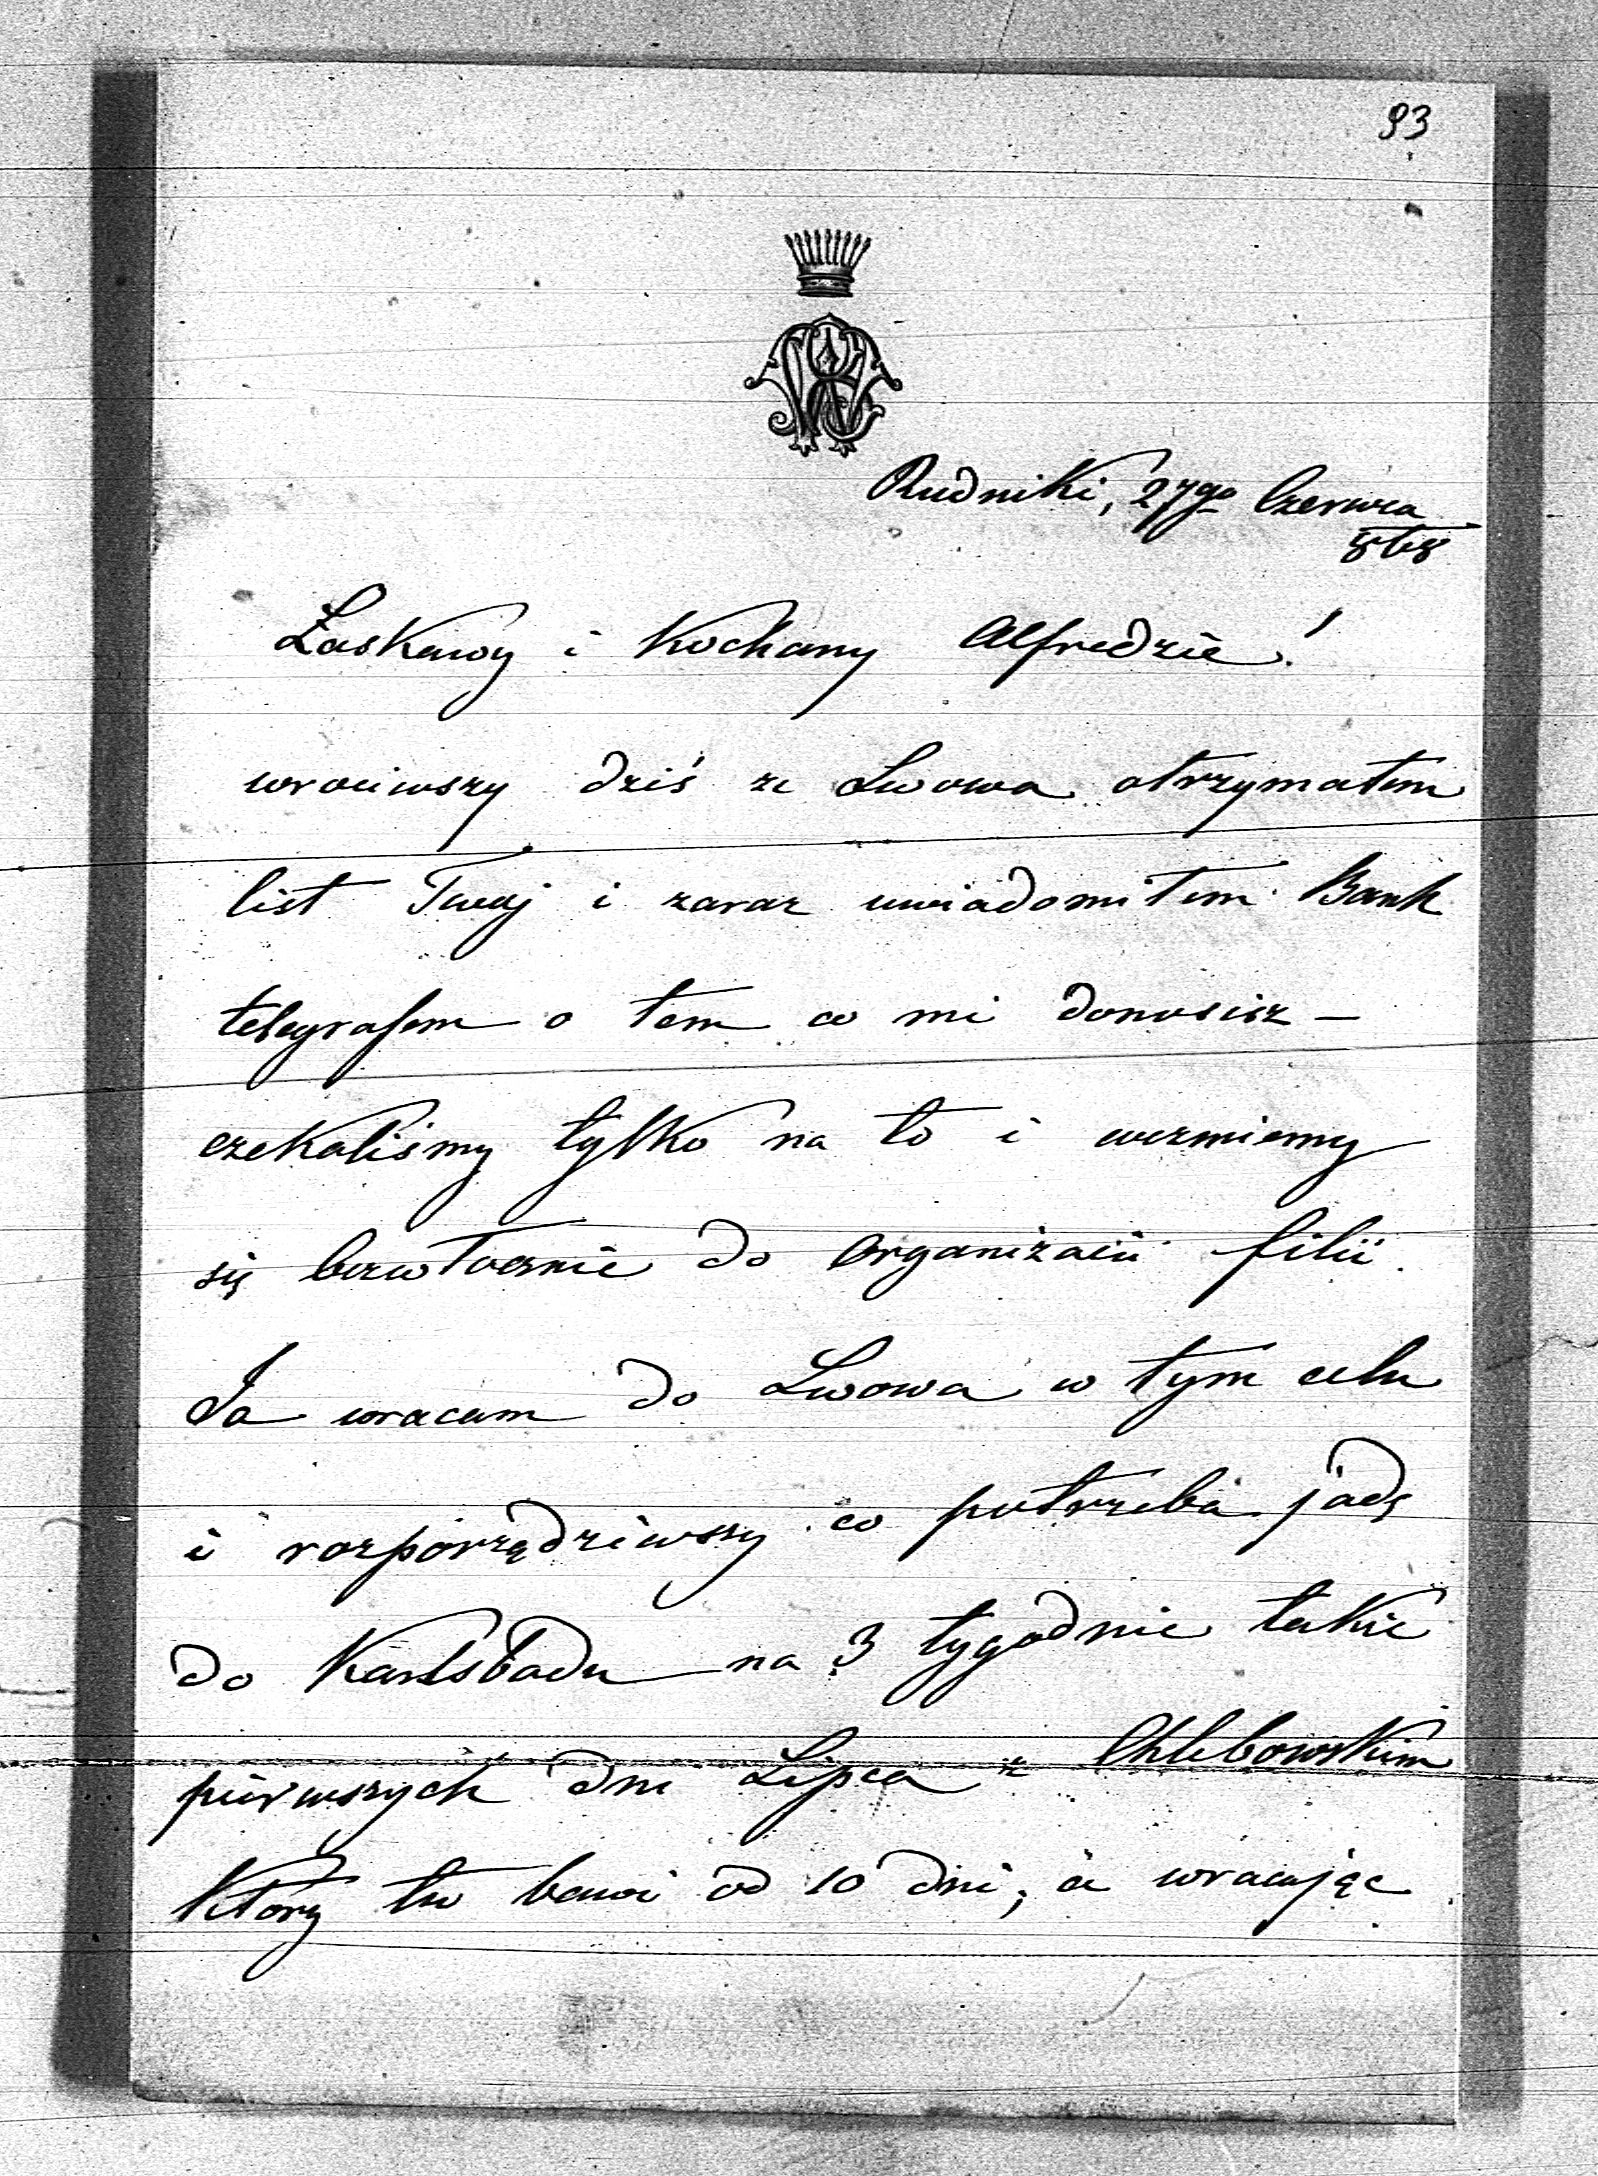 93
Rudniki, 27go Czerwca
868
Łaskawy i Kochany Alfredzie!
wrociwszy dziś ze Lwowa otrzymałem
list Twoj i zaraz uwiadomiłem Bank
telegrafem o tem co mi donosisz –
czekaliśmy tylko na to i weźmiemy
się bezwłocznie do organizacii filii.
Ja wracam do Lwowa w tym celu
i rozporządziwszy co potrzeba jadę
do Karlsbadu na 3 tygodnie takie
pierwszych dni Lipca z Chlebowskim
Który tu bawi od 10 dni, a wracając